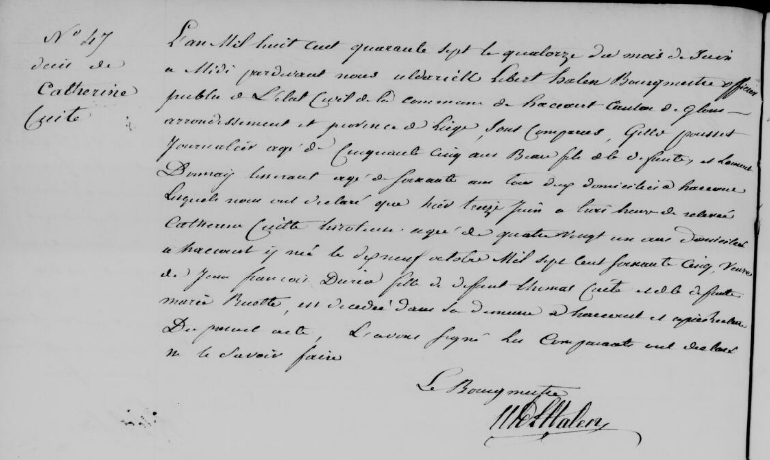 N° 47
décès de
Catherine
Cuite
L'an Mil huit cent quarante sept le quatorze du mois de Juin
a Midi pardevant nous Libert halen Bourgmestre officier
public de L'état Civil de la commune de haccourt Canton de glons
arrondissement et province de Liège, Sont Comparus, Gille pousset
Journalier agé de Cinquante Cinq ans Beau fils de la defunte, et Laurent
agé de soixante ans tous deux domiciliés à haccourt
Lesquels nous ont declaré que hier treize Juin a trois heures de relevée
Catherine Cuitte agée de quatre vingt un ans domiciliée
a haccourt y née le dix neuf octobre Mil sept cent soixante Cinq veuve
de Jean françois fille de defunt thomas Cuite et de la defunte
marie est decedée dans sa demeure a haccourt et après lecture
Du present acte, L'avons signé Les Comparants ont declaré
ne le savoir faire
Le Bourgmestre
Halen